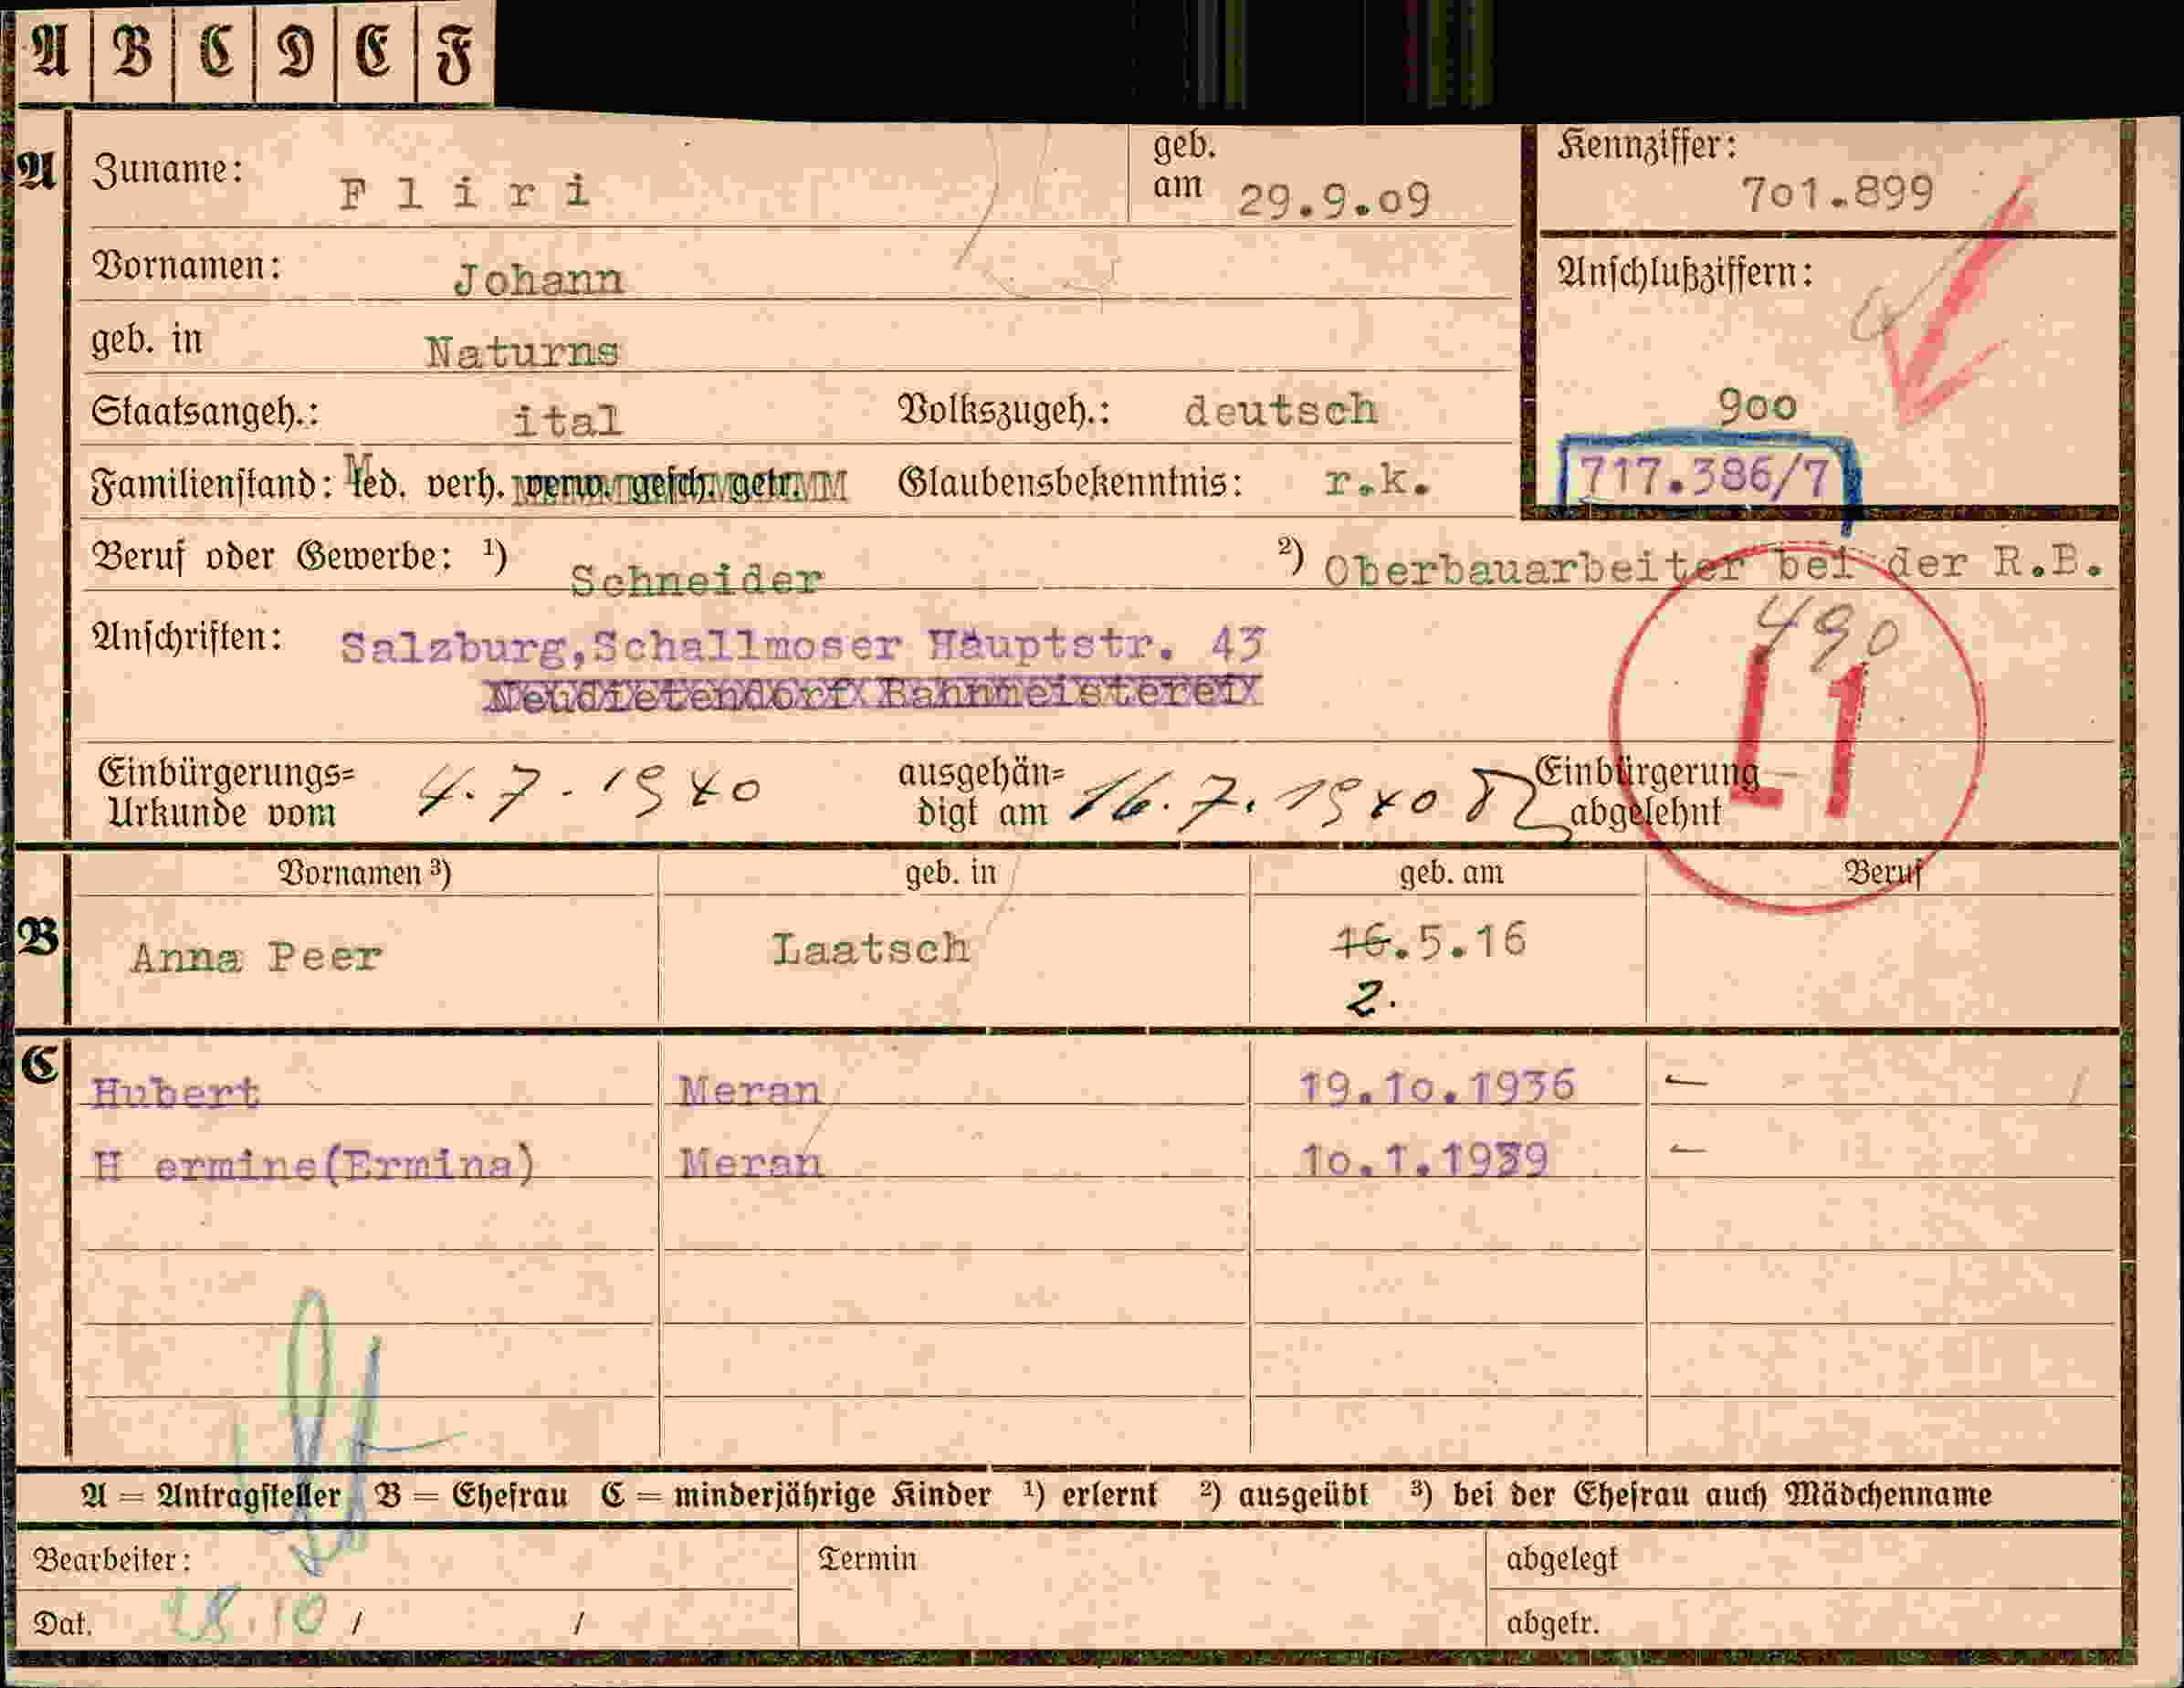 A B C D E F
A Zuname: Fliri geb. am 29.9.09 Kennziffer: 701.899
Vornamen: Johann Anschlußziffern:
geb. in Naturns
Staatsangeh.: ital Volkszugeh.: deutsch 900
Familienstand: led. verh. verw. gesch. getr. Glaubensbekenntnis: r.k. 717.386/7
Beruf oder Gewerbe: ¹) Schneider ²) Oberbauarbeiter bei der R.B.
490
L1
Anschriften: Salzburg,Schallmoser Hauptstr. 43
Neudietendorf Bahnmeisterei
Einbürgerungs=Urkunde vom 4.7.1940 ausgehän=digt am 16.7.1940 Einbürgerung abgelehnt
Vornamen ³) geb. in geb. am Beruf
B Anna Peer Laatsch 16.5.16
2.
C Hubert Meran 19.10.1936 —
H ermine(Ermina) Meran 10.1.1939 —
A = Antragsteller B = Ehefrau C = minderjährige Kinder ¹) erlernt ²) ausgeübt ³) bei der Ehefrau auch Mädchenname
Bearbeiter: Termin abgelegt
Dat. 28.10 / / abgetr.